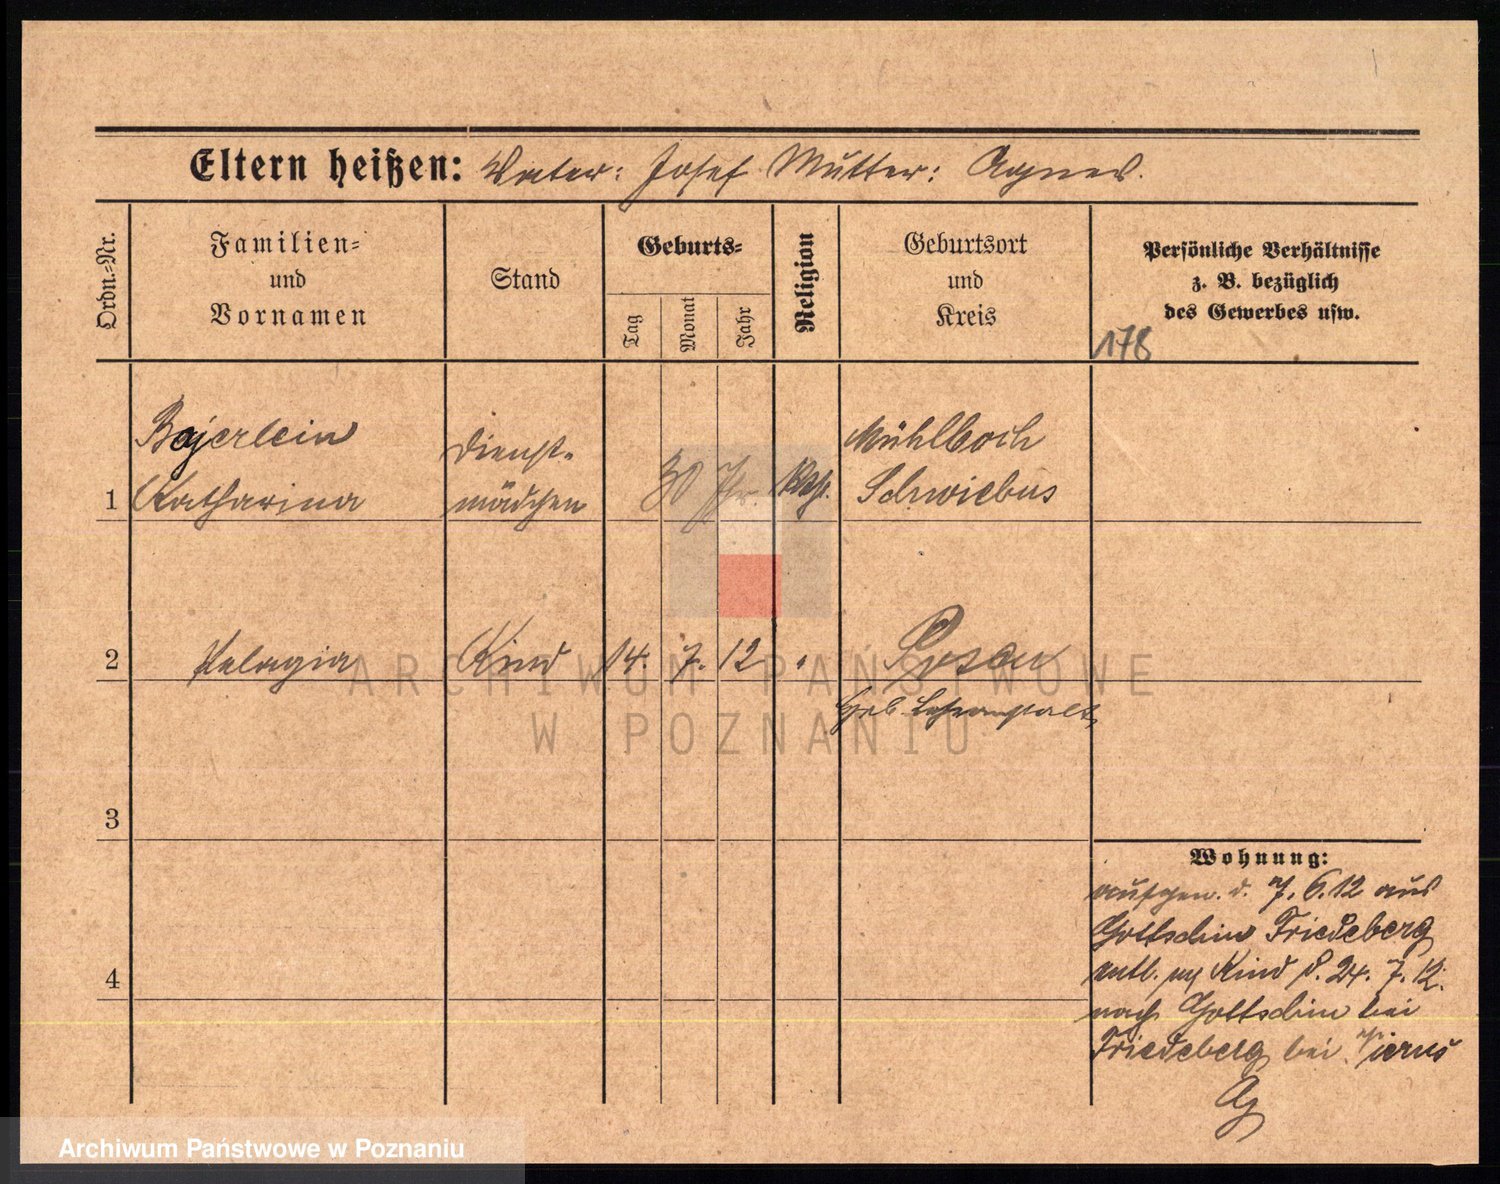 Eltern heißen: Vater: Josef Mutter: Agnes.
Ordn.-Nr.
Familien-
und
Vornamen
Stand
Geburts-
Tag
Monat
Jahr
Religion
Geburtsort
und
Kreis
Persönliche Verhältnisse
z. B. bezüglich
des Gewerbes usw.
178
Bajerlein
Katharina
Dienst-
mädchen
30 Jhr.
Kath.
Mühlboch
Schwiebus
1
2 Pelagia Kind 14. 7. 12 " Posen
Geb. Lehranstalt
3
4
Wohnung:
aufgen. d. 7. 6. 12 aus
Gottschim Friedeberg
entl. m Kind d. 24. 7. 12.
nach Gottschim bei
Friedeberg bei
ARCHIWUM PAŃSTWOWE
W POZNANIU
Archiwum Państwowe w Poznaniu